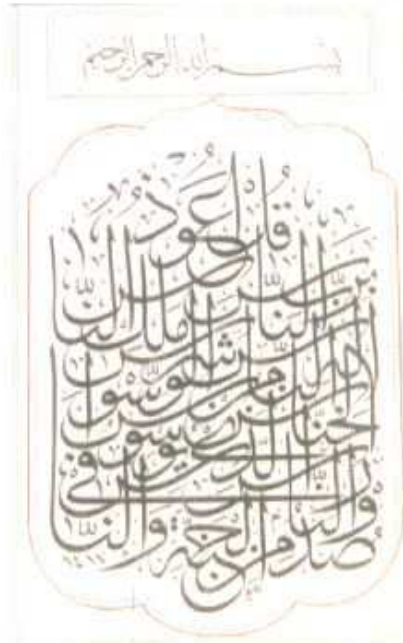 بسم الله الرحمن الرحيم
قل أعوذ
برب الناس ملك الناس
إله الناس من شر الوسواس
الخناس الذي يوسوس في
صدور الناس من الجنة والناس